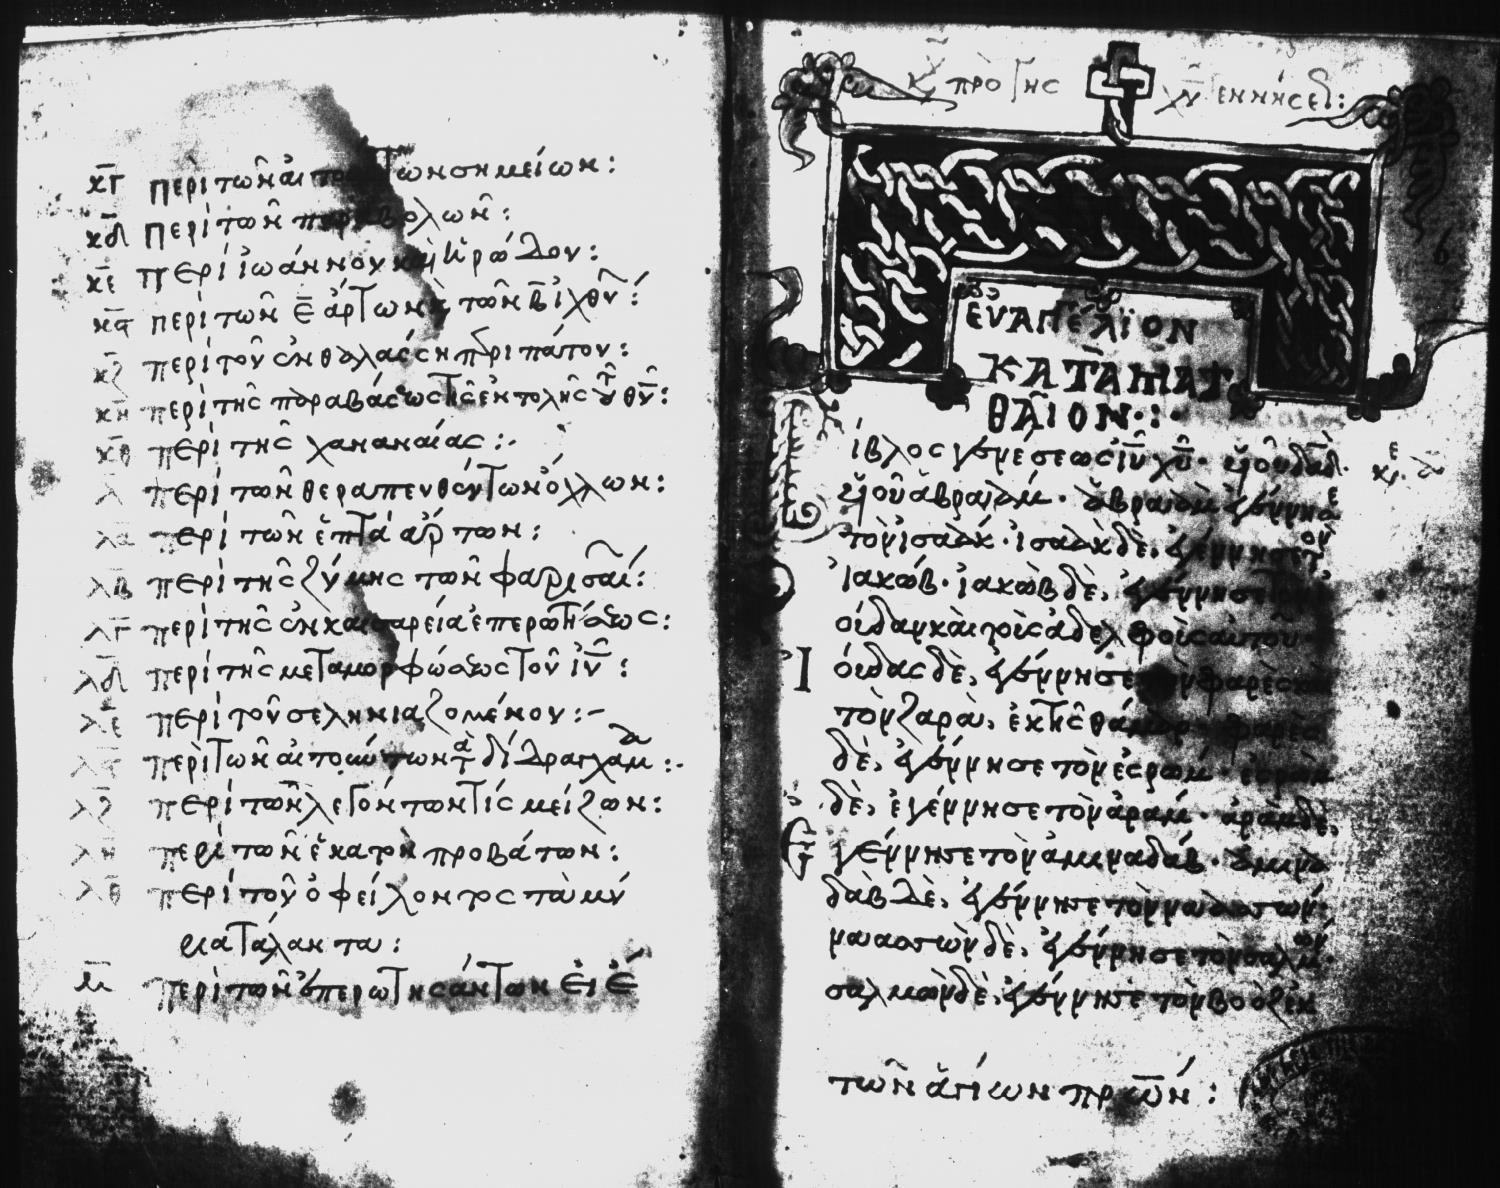 κγ περὶ τῶν αἰτούντων σημείων:
κδ περὶ τῶν παραβολῶν:
κε περὶ ἰωάννου καὶ ἡρώδου:
κϛ περὶ τῶν ε̄ ἄρτων κ̀ τῶν β̄ ἰχθυ:
κζ περὶ τοῦ ἐν θαλάσση πδριπάτου:
κη περὶ τῆς παραβάσεως τῆς ἐντολῆς τοῦ θυ:
κθ περὶ τῆς χαναναίας:
λ περὶ τῶν θεραπευθέντων ὄχλων:
λα περὶ τῶν ἑπτά ἄρτων:
λβ περὶ τῆς ζύμης τῶν φαρισαί:
λγ περὶ τῆς ἐν καισαρεία ἐπερωτήσεως:
λδ περὶ τῆς μεταμορφώσεως τοῦ ιυ:
λε περὶ τοῦ σεληνιαζομένου:-
λϛ περὶ τῶν αἰτούντων τὰ δίδραγχμα:
λζ περὶ τῶν λεγόντων τίς μείζων:
λη περὶ τῶν ἑκατὸν προβάτων:
λθ περὶ τοῦ ὀφείλοντος τὰ μύ
ρια τάλαντα:
μ περὶ τῶν ἐπερωτησάντων εἰ ἔ
κυ πρὸ τῆς χυ γεννήσε:
ἐυαγγέλιον
κατὰ ματ
θαῖον:
ίβλος γενέσεως ιυ χυ· υἱοῦ δαδ·
υἱοῦ ἀβραάμ· ἀβραὰμ ἐγέννησε
τὸν ἰσαάκ· ἰσαὰκ δὲ, ἐγέννησε τὸν
ἰακώβ· ἰακὼβ δὲ, ἐγέννησε τὸν
ἰούδαν καὶ τοὺς ἀδελφοὺς αὐτοῦ·
ἰούδας δὲ, ἐγέννησε τὸν φαρὲς καὶ
τὸν ζαρὰ, ἐκ τῆς θάμαρ· φαρὲς
δὲ, ἐγέννησε τὸν ἐσρώμ· ἐσρὼμ
δὲ, ἐγέννησε τὸν ἀράμ· ἀρὰμ δὲ,
ἐγέννησε τὸν ἀμιναδάβ· ἀμινα
δὰβ δὲ, ἐγέννησε τὸν ναασσών·
ναασσὼν δὲ, ἐγέννησε τὸν σαλμών·
σαλμὼν δὲ, ἐγέννησε τὸν βοὸζ ἐκ
τῶν ἁγίων πρων: